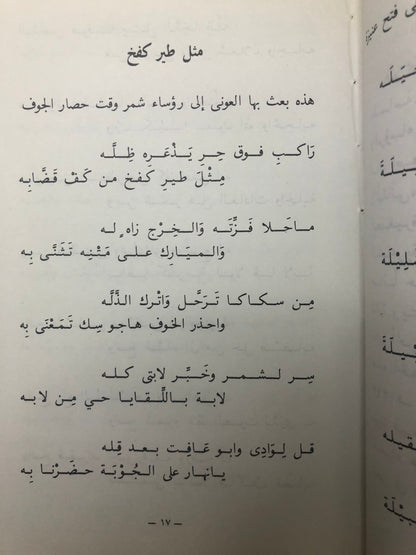 مثل طير كفخ
هذه بعث بها العونى إلى رؤساء شمر وقت حصار الجوف
رَاكب فوق حِر يَذْعَره ظِلَّه
مِثْل طير كفخ من كَف قَضَّابِه
ماحَلا فَزَّتَه وَالخِرْج زاه له
وَالميَارِك على مَتْنِه تَثَنَّى بِه
مِن سكاكا تَرَحَّل وَاتْرك الذِّلَّه
واحذر الخوف هاجوسك تَمَعْنَى بِه
سِر لشمر وخَبِّر لابتى كله
لابة باللِّقايا حي مِن لابه
قل لِوَادى وابو عَافِت بعد قِله
يانهار على الجُوْبَة حضَرْنا بِه
– ١٧ –
فتح
سَيْلَه
سيلَة
لِيْلَة
يْلَة
قيله
بِيْلَة